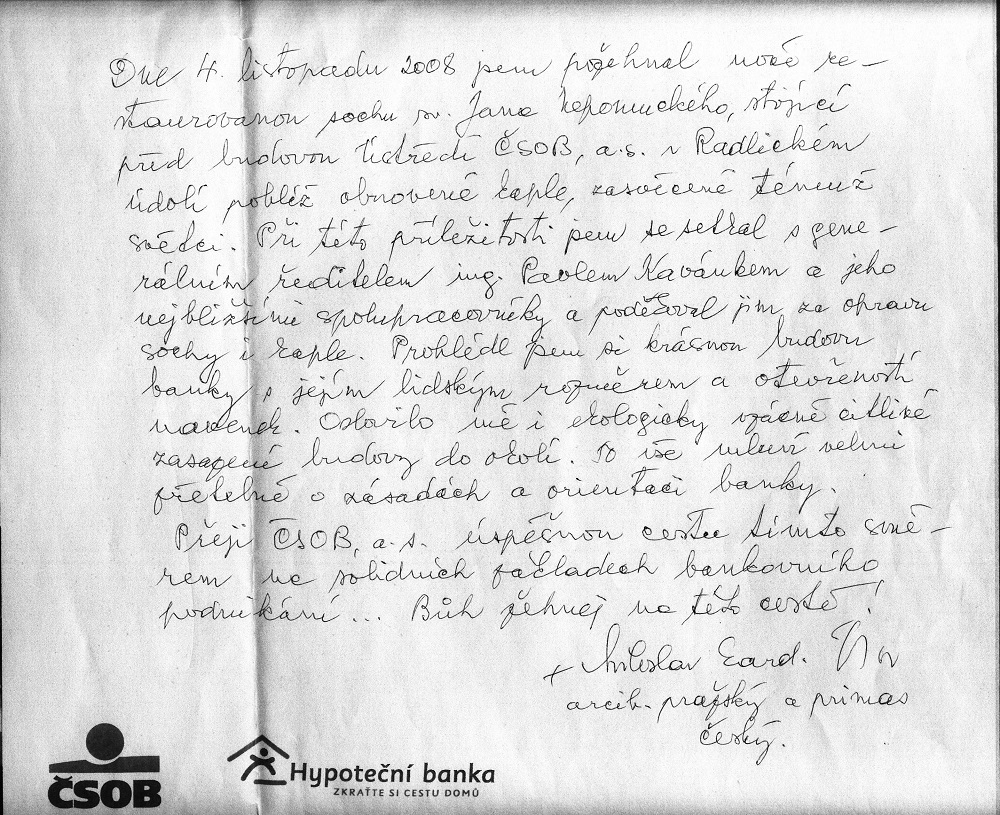 Dne 4. listopadu 2008 jsem požehnal nově re-
staurovanou sochu sv. Jana Nepomuckého, stojící
před budovou Ústředí ČSOB, a.s. v Radlickém
údolí poblíž obnovené kaple, zasvěcené témuž
světci. Při této příležitosti jsem se setkal s gene-
rálním ředitelem ing. Pavlem Kavánkem a jeho
nejbližšími spolupracovníky a poděkoval jim za opravu
sochy i kaple. Prohlédl jsem si krásnou budovu
banky s jejím lidským rozměrem a otevřeností
navenek. Oslovilo mě i ekologicky vzácně citlivé
zasazení budovy do okolí. To vše mluví velmi
zřetelně o zásadách a orientaci banky.
Přeji ČSOB, a.s. úspěšnou cestu tímto smě-
rem na solidních základech bankovního
podnikání... Bůh žehnej na této cestě!
+ Miloslav Card. Vlk
arcib. pražský a primas
český.
ČSOB
Hypoteční banka
ZKRAŤTE SI CESTU DOMŮ